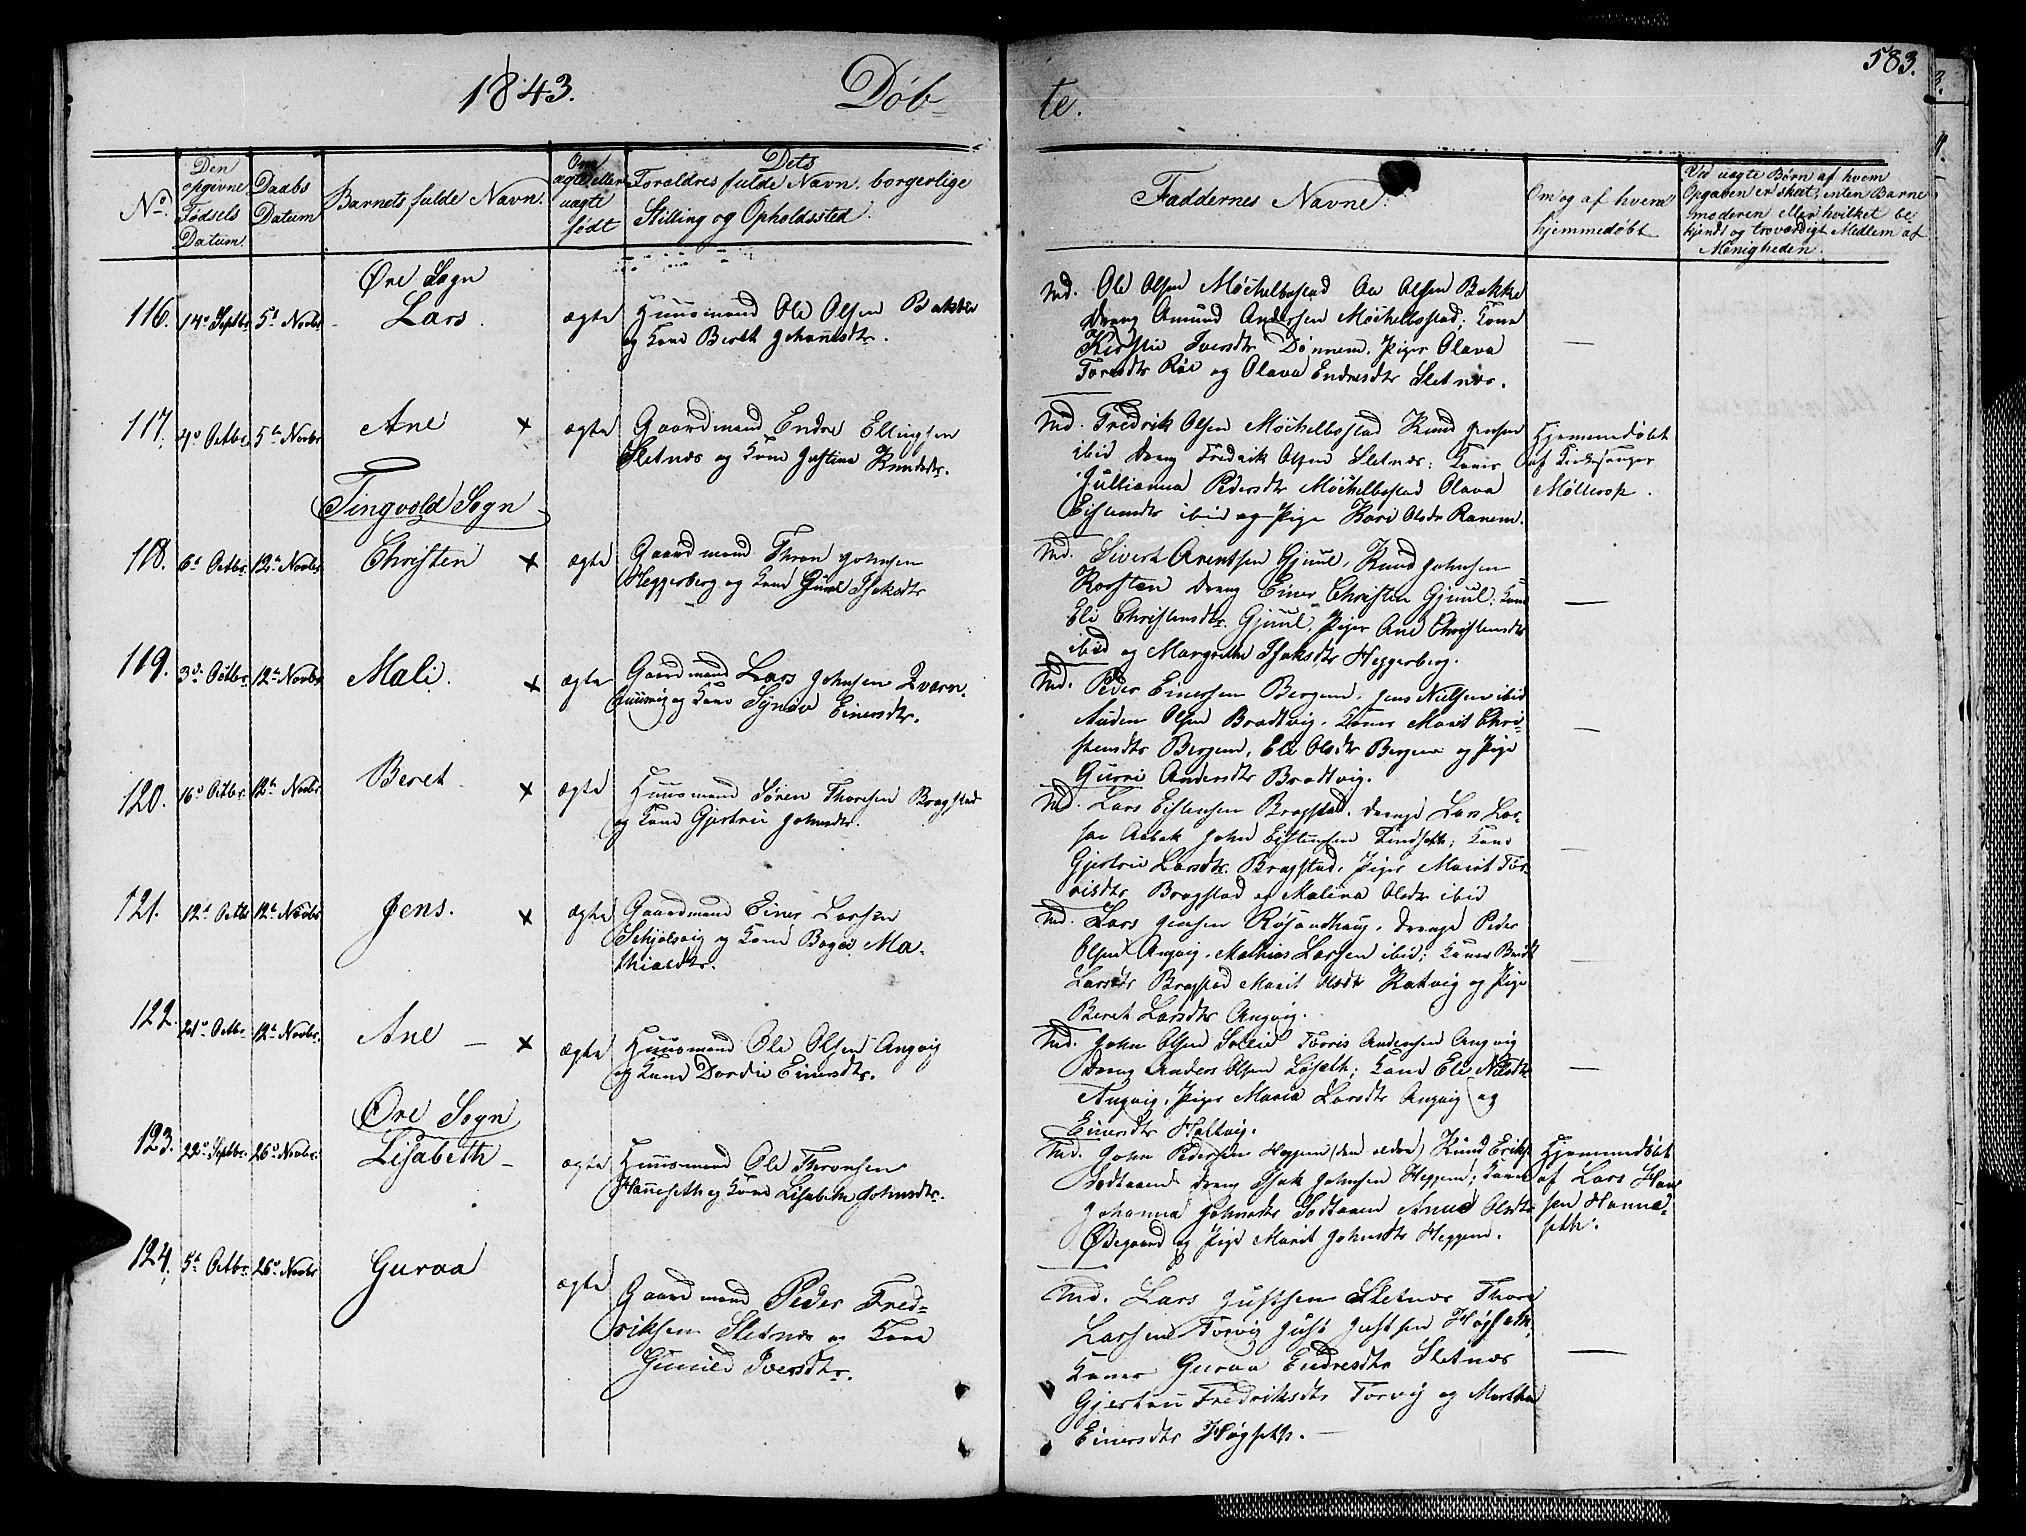 583.
1843. Døb-
te.
No.
Den opgivne Fødsels Datum.
Daabs Datum
Barnets fulde Navn.
Om ægte eller uægte født
Dets Foraldres fulde Navn. borgerlige Stilling og Opholdssted.
Faddernes Navne.
Om og af hvem hjemmedøbt
Ved uægte Børn af hvem Opgaven er skeet, enten Barne moderen eller hvilket be- kjendt og troværdigt Medlem af Menigheden.
Øre Sogn
116. 14de Septbr 5te Novbr. Lars. ægte
Huusmand Ole Olsen Bakke
og Kone Bereth Johannesdtr.
Md. Ole Olsen Møchelbostad Ole Olsen Bakke
Dreng Amund Andersen Møchelbostad; Kone
Kirstie Iversdtr Dønnem. Piger Olava
Toresdtr Røe og Olava Endresdtr Sletnæs.
117. 4de Octbr. 5te Novbr Ane × ægte
Gaardmand Endre Ellingsen
Sletnæs og Kone Justina Knudsdtr.
Md. Fredrik Olsen Møchelbostad Knud Jensen
ibid Dreng Fredrik Olsen Sletnæs; Koner
Jullianna Pedersdtr Møchelbostad Olava
Eistensdtr ibid og Pige Kari Olsdtr Ranem.
Hjemmedøbt
af Kirkesanger
Møllerop.
Tingvold Sogn
118. 6te Octbr. 12te Novbr. Christen × ægte
Gaardmand Thron Johnsen
Heggerberg og Kone Gunil Isaksdtr
Md. Sivert Arentsen Gjuul, Knud Johnsen
Korsten Dreng Einer Christen Gjuul; Kone
Eli Christensdtr. Gjuul, Piger Ane Christensdtr
ibid og Margrethe Isaksdtr Heggerberg.
119. 3de Octbr. 12te Novbr Mali. × ægte
Gaardmand Lars Johnsen Qværn-
huusvig og Kone Synøv Einersdtr.
Md. Peder Einersen Bergem, Jens Nielsen ibid
Auden Olsen Bradtvig. Koner Marit Chri-
stensdtr Bergem, Eli Olsdtr Bergem og Pige
Gurri Andersdtr Bradtvig.
120. 16de Octbr. 12te Novbr Beret. × ægte
Huusmand Søren Thoresen Bragstad
og Kone Gjertrue Johnsdtr.
Md. Lars Eistensen Bragstad. Drenge Lars Lar-
sen Aabak John Eistensen Tindseth; Kone
Gjertrue Larsdtr. Bragstad. Piger Marit Tor-
risdtr Bragstad og Malena Olsdtr ibid
121. 12te Octbr 12te Novbr Jens. × ægte
Gaardmand Einer Larsen
Schjølsvig og Kone Boged Ma-
thiasdtr.
Md. Lars Jensen Røsandhaug. Drenge Peder
Olsen Angvig. Mathias Larsen ibid; Koner Beret
Larsdtr Bragstad Marit Olsdtr Kotvig og Pige
Beret Larsdtr Angvig.
122. 21de Octbr. 12te Novbr. Ane × ægte
Huusmand Ole Olsen Angvig
og Kone Dordie Einersdtr.
Md. John Olsen Sollie Torris Andersen Angvig
Dreng Anders Olsen Løseth; Kone Eli Nilsdtr
Angvig, Piger Maria Larsdtr Angvig og
Einersdtr Holtvig.
Øre Sogn
123. 22de Septbr. 26de Novbr. Lisabeth ægte
Huusmand Ole Thronsen
Hanneseth og Kone Lisabeth Johnsdtr.
Md. John Pedersen Heggem (den eldre) Knud Eriks.
Sodtaaen Dreng Isak Johnsen Heggem; Koner
Johanna Johnsdtr Sodtaaen Anne Olsdtr
Ødegaard og Pige Marit Johnsdtr Heggem.
Hjemmedøbt
af Lars Han-
sen Hanne-
seth.
124. 5te Octbr. 26de Novbr Guraa ægte
Gaardmand Peder Fred-
riksen Sletnæs og Kone
Gunild Iversdtr.
Md. Lars Justsen Sletnæs Thore
Larsen Torvig Just Justsen Høgseth.
Koner Guraa Endresdtr Sletnæs
Gjertru Fredriksdtr Torvig og Marthe
Einersdtr Høgseth.